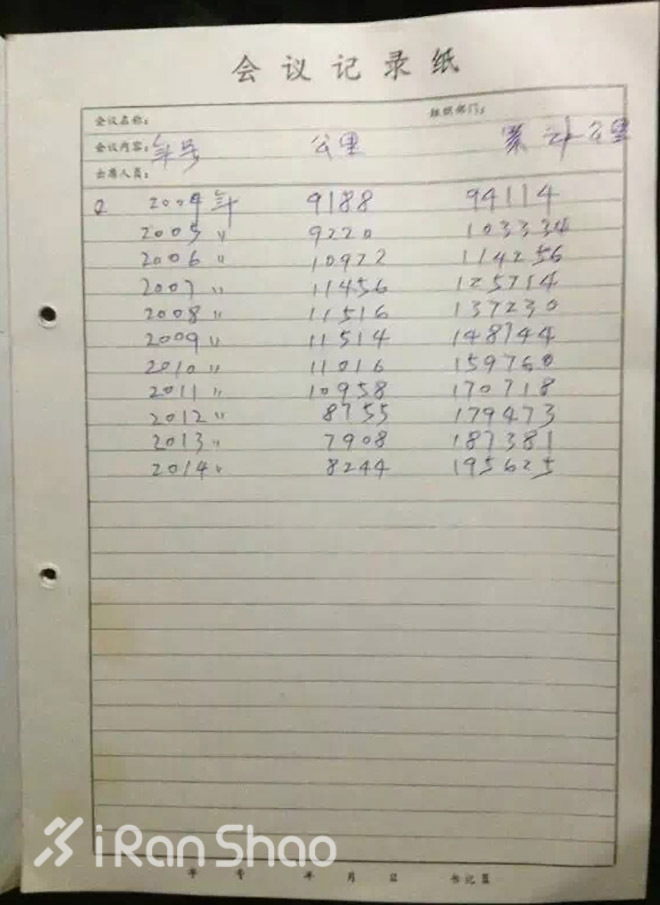 会议记录纸
会议名称： 组织部门：
会议内容：年号 公里 累计公里
出席人员：
2004年 9188 94114
2005〃 9220 103334
2006〃 10922 114256
2007〃 11456 125714
2008〃 11516 137230
2009〃 11514 148744
2010〃 11016 159760
2011〃 10958 170718
2012〃 8755 179473
2013〃 7908 187381
2014〃 8244 195625
iRanShao
年 月 日